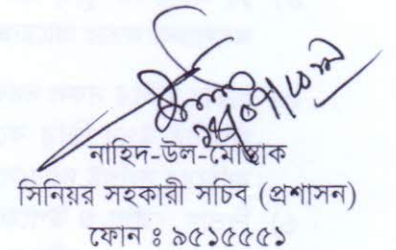 নাহিদ-উল-মোস্তাক
সিনিয়র সহকারী সচিব (প্রশাসন)
ফোন ঃ ৯৫১৫৫৫১